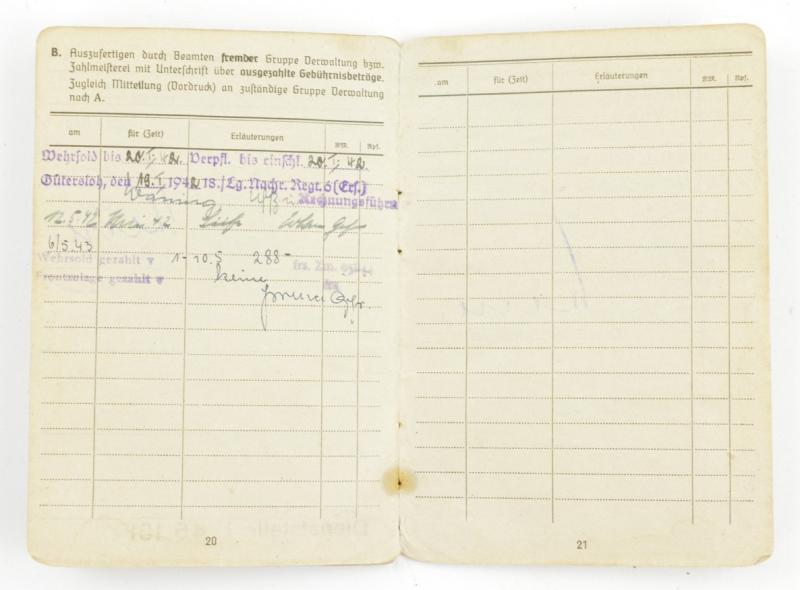 B. Auszufertigen durch Beamten fremder Gruppe Verwaltung bzw.
Zahlmeisterei mit Unterschrift über ausgezahlte Gebührnisbeträge.
Zugleich Mitteilung (Vordruck) an zuständige Gruppe Verwaltung
nach A.
am für (Zeit) Erläuterungen RM. Rpf.
Wehrsold bis 20.I.42. Verpfl. bis einschl. 20.I.42.
Gütersloh, den 19.I.1942 18./Lg. Nachr. Regt. 6 (Ers.)
Rechnungsführer
12.5.42 Mai 42
6/5.43
Wehrsold gezahlt v 1-10.5 288-
Frontzulage gezahlt v keine
20
am für (Zeit) Erläuterungen RM. Rpf.
21